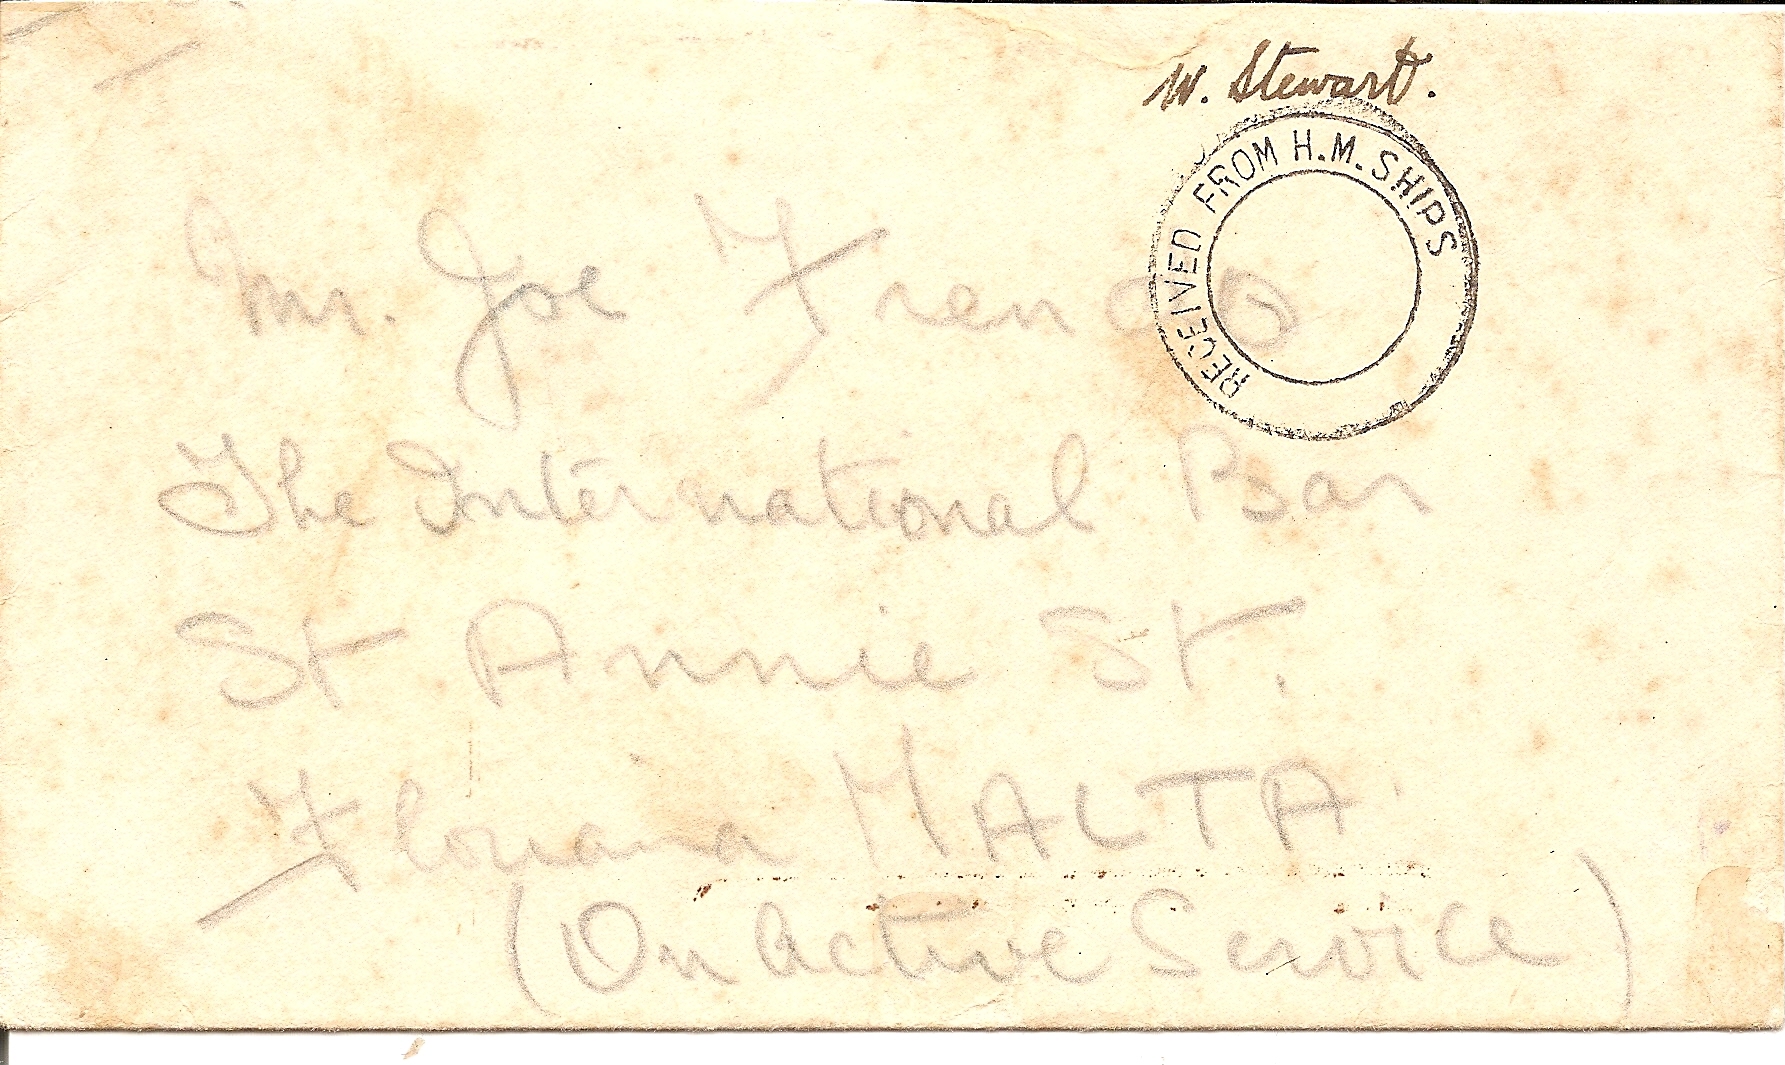 W. Stewart.
RECEIVED FROM H.M. SHIPS
Mr. Joe Frendo
The International Bar
St Annie St.
Floriana MALTA.
(On Active Service)